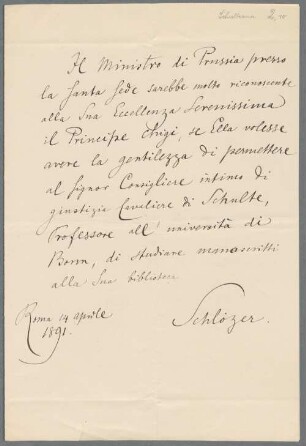 Il Ministro di Prussia presso
la Santa Sede sarebbe molto riconoscente
alla Sua Eccellenza Serenissima
il Principe Chigi, se Ella volesse
avere la gentilezza di permettere
al Signor Consigliere intimo di
giustizia Cavaliere di Schulte,
Professore all' università di
Bonn, di studiare manoscritti
alla Sua biblioteca
Roma 14 aprile
1891.
Schlözer.